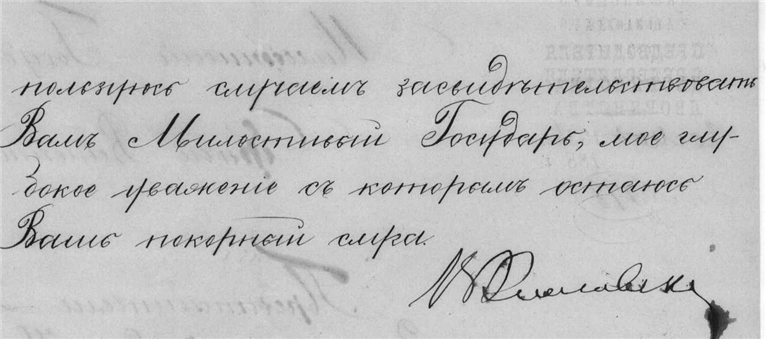 пользуюсь случаемъ засвидѣтельствовать
Вамъ Милостивый Государь, мое глу-
бокое уваженіе съ которымъ остаюсь
Вашъ покорный слуга.